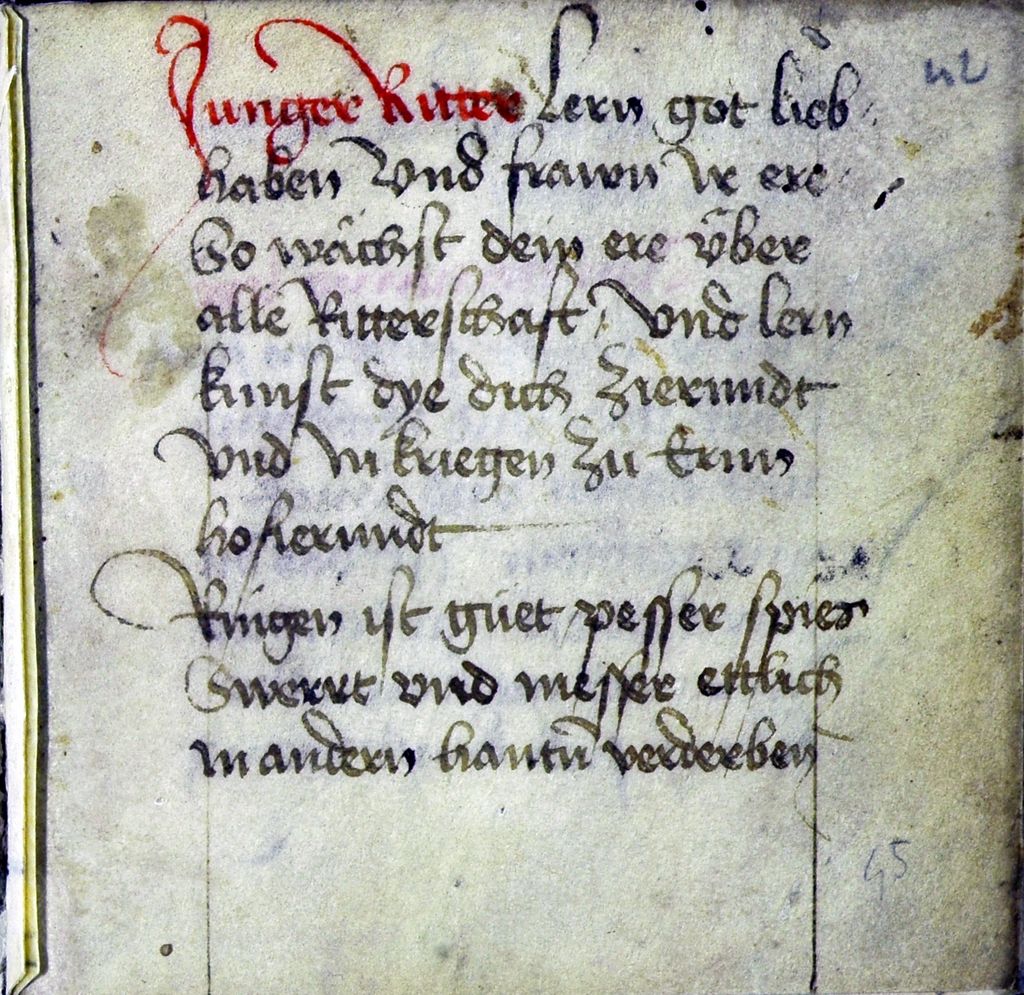 42
Junger Ritter lern got lieb
haben vnd frawn ir ere
So wächst dein ere über
alle Ritterschafft / vnd lern
kunst dye dich zierundt
vnd in kriegen zu Ernn
hofierundt
Ringen ist güet pesser spies
Swerrt vnd messer ettlich
in andern hantn̄ verderben
45